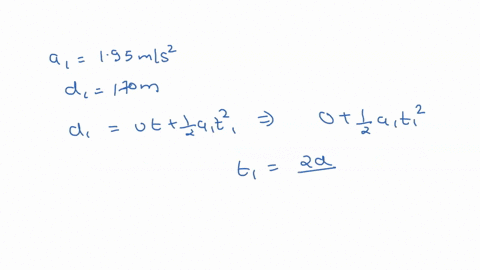 a₁ = 1.95 m/s²
d₁ = 170m
d₁ = ut + ½ a₁t₁² ⇒ 0 + ½ a₁t₁²
t₁ = 2a